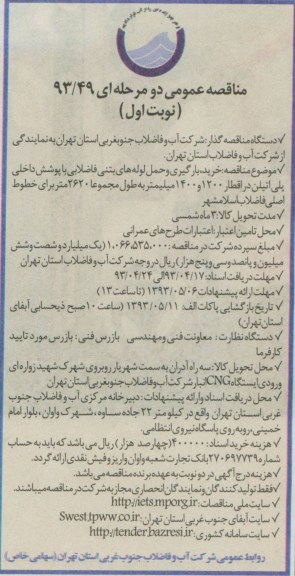 مناقصه عمومی دو مرحله‌ای ۹۳/۴۹
(نوبت اول)
✓دستگاه مناقصه گذار: شرکت آب و فاضلاب جنوبغربی استان تهران به نمایندگی
از شرکت آب و فاضلاب استان تهران.
✓موضوع مناقصه: خرید، بارگیری و حمل لوله‌های بتنی فاضلابی با پوشش داخلی
پلی اتیلن در اقطار ۱۲۰۰ و ۱۴۰۰ میلیمتر به طول مجموعا ۲۶۲۰ متر برای خطوط
اصلی فاضلاب اسلامشهر
✓مدت تحویل کالا: ۳ ماه شمسی
✓محل تامین اعتبار: اعتبارات طرح‌های عمرانی
✓مبلغ سپرده شرکت در مناقصه: ۱,۰۶۶,۵۳۵,۰۰۰ (یک میلیارد و شصت وشش
میلیون و پانصد و سی و پنج هزار) ریال در وجه شرکت آب و فاضلاب استان تهران
✓مهلت دریافت اسناد: ۹۳/۰۴/۱۷ الی ۹۳/۰۴/۲۴
✓مهلت ارائه پیشنهادات: ۱۳۹۳/۰۵/۰۶ (تا ساعت ۱۳)
✓تاریخ بازگشایی پاکات الف: ۱۳۹۳/۰۵/۱۱ (ساعت ۱۰ صبح ذیحسابی آبفای
استان تهران)
✓دستگاه نظارت: معاونت فنی و مهندسی بازرس فنی: بازرس مورد تایید
کارفرما
✓محل تحویل کالا: سه راه آدران به سمت شهریار روبروی شهرک شهید زواره‌ای
ورودی ایستگاه CNG انبار شرکت آب و فاضلاب جنوبغربی استان تهران
✓محل دریافت اسناد و ارائه پیشنهادات: دبیرخانه مرکزی آب و فاضلاب جنوب
غربی استان تهران واقع در کیلومتر ۲۲ جاده ساوه، شهرک واوان، بلوار امام
خمینی، روبه‌روی پاسگاه نیروی انتظامی.
✓هزینه خرید اسناد: ۴۰۰۰۰۰ (چهارصد هزار) ریال می‌باشد که باید به حساب
شماره ۲۷۰۶۹۷۷۳۹ بانک تجارت شعبه واوان واریز و فیش نقدی ارائه گردد.
✓هزینه درج آگهی در دو نوبت به عهده برنده مناقصه می‌باشد.
✓فقط تولید کنندگان و نمایندگان انحصاری مجاز به شرکت در مناقصه میباشند.
✓سایت ملی مناقصات: http://iets.mporg.ir
✓سایت آبفای جنوب غربی استان تهران: Swest.tpww.co.ir
✓سایت سامانه کشوری: http://tender.bazresi.ir
روابط عمومی شرکت آب و فاضلاب جنوب غربی استان تهران (سهامی خاص)